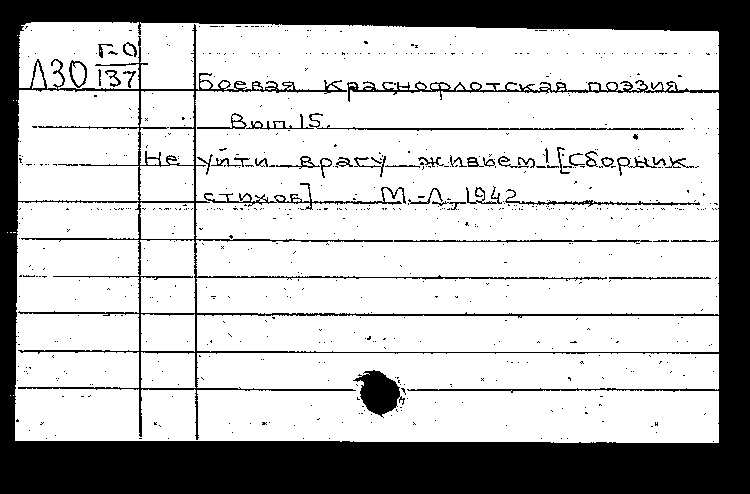 Л30 Г-0
137
Боевая краснофлотская поэзия.
Вып. 15.
Не уйти врагу живьем! [Сборник
стихов] М.-Л., 1942